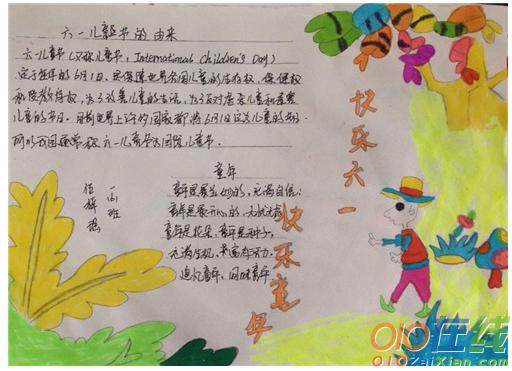 六一儿童节的由来
六一儿童节(又称儿童节, International Children's Day)
定于每年的6月1日。为保障世界各国儿童的生存权、保健权
和受教育权,为了改善儿童的生活,为了反对虐杀儿童和毒害
儿童的节日。目前世界上许多的国家都将6月1日定为儿童的节日
所以我国通常称六一儿童节为国际儿童节。
快乐六一
童年
童年是
充满自信;
童年是最开心的,无忧无虑
童年是花朵,童年是种子,
充满生机,
活力。
追忆童年,回味童年
快乐童年
010在线
010ZaiXian.com